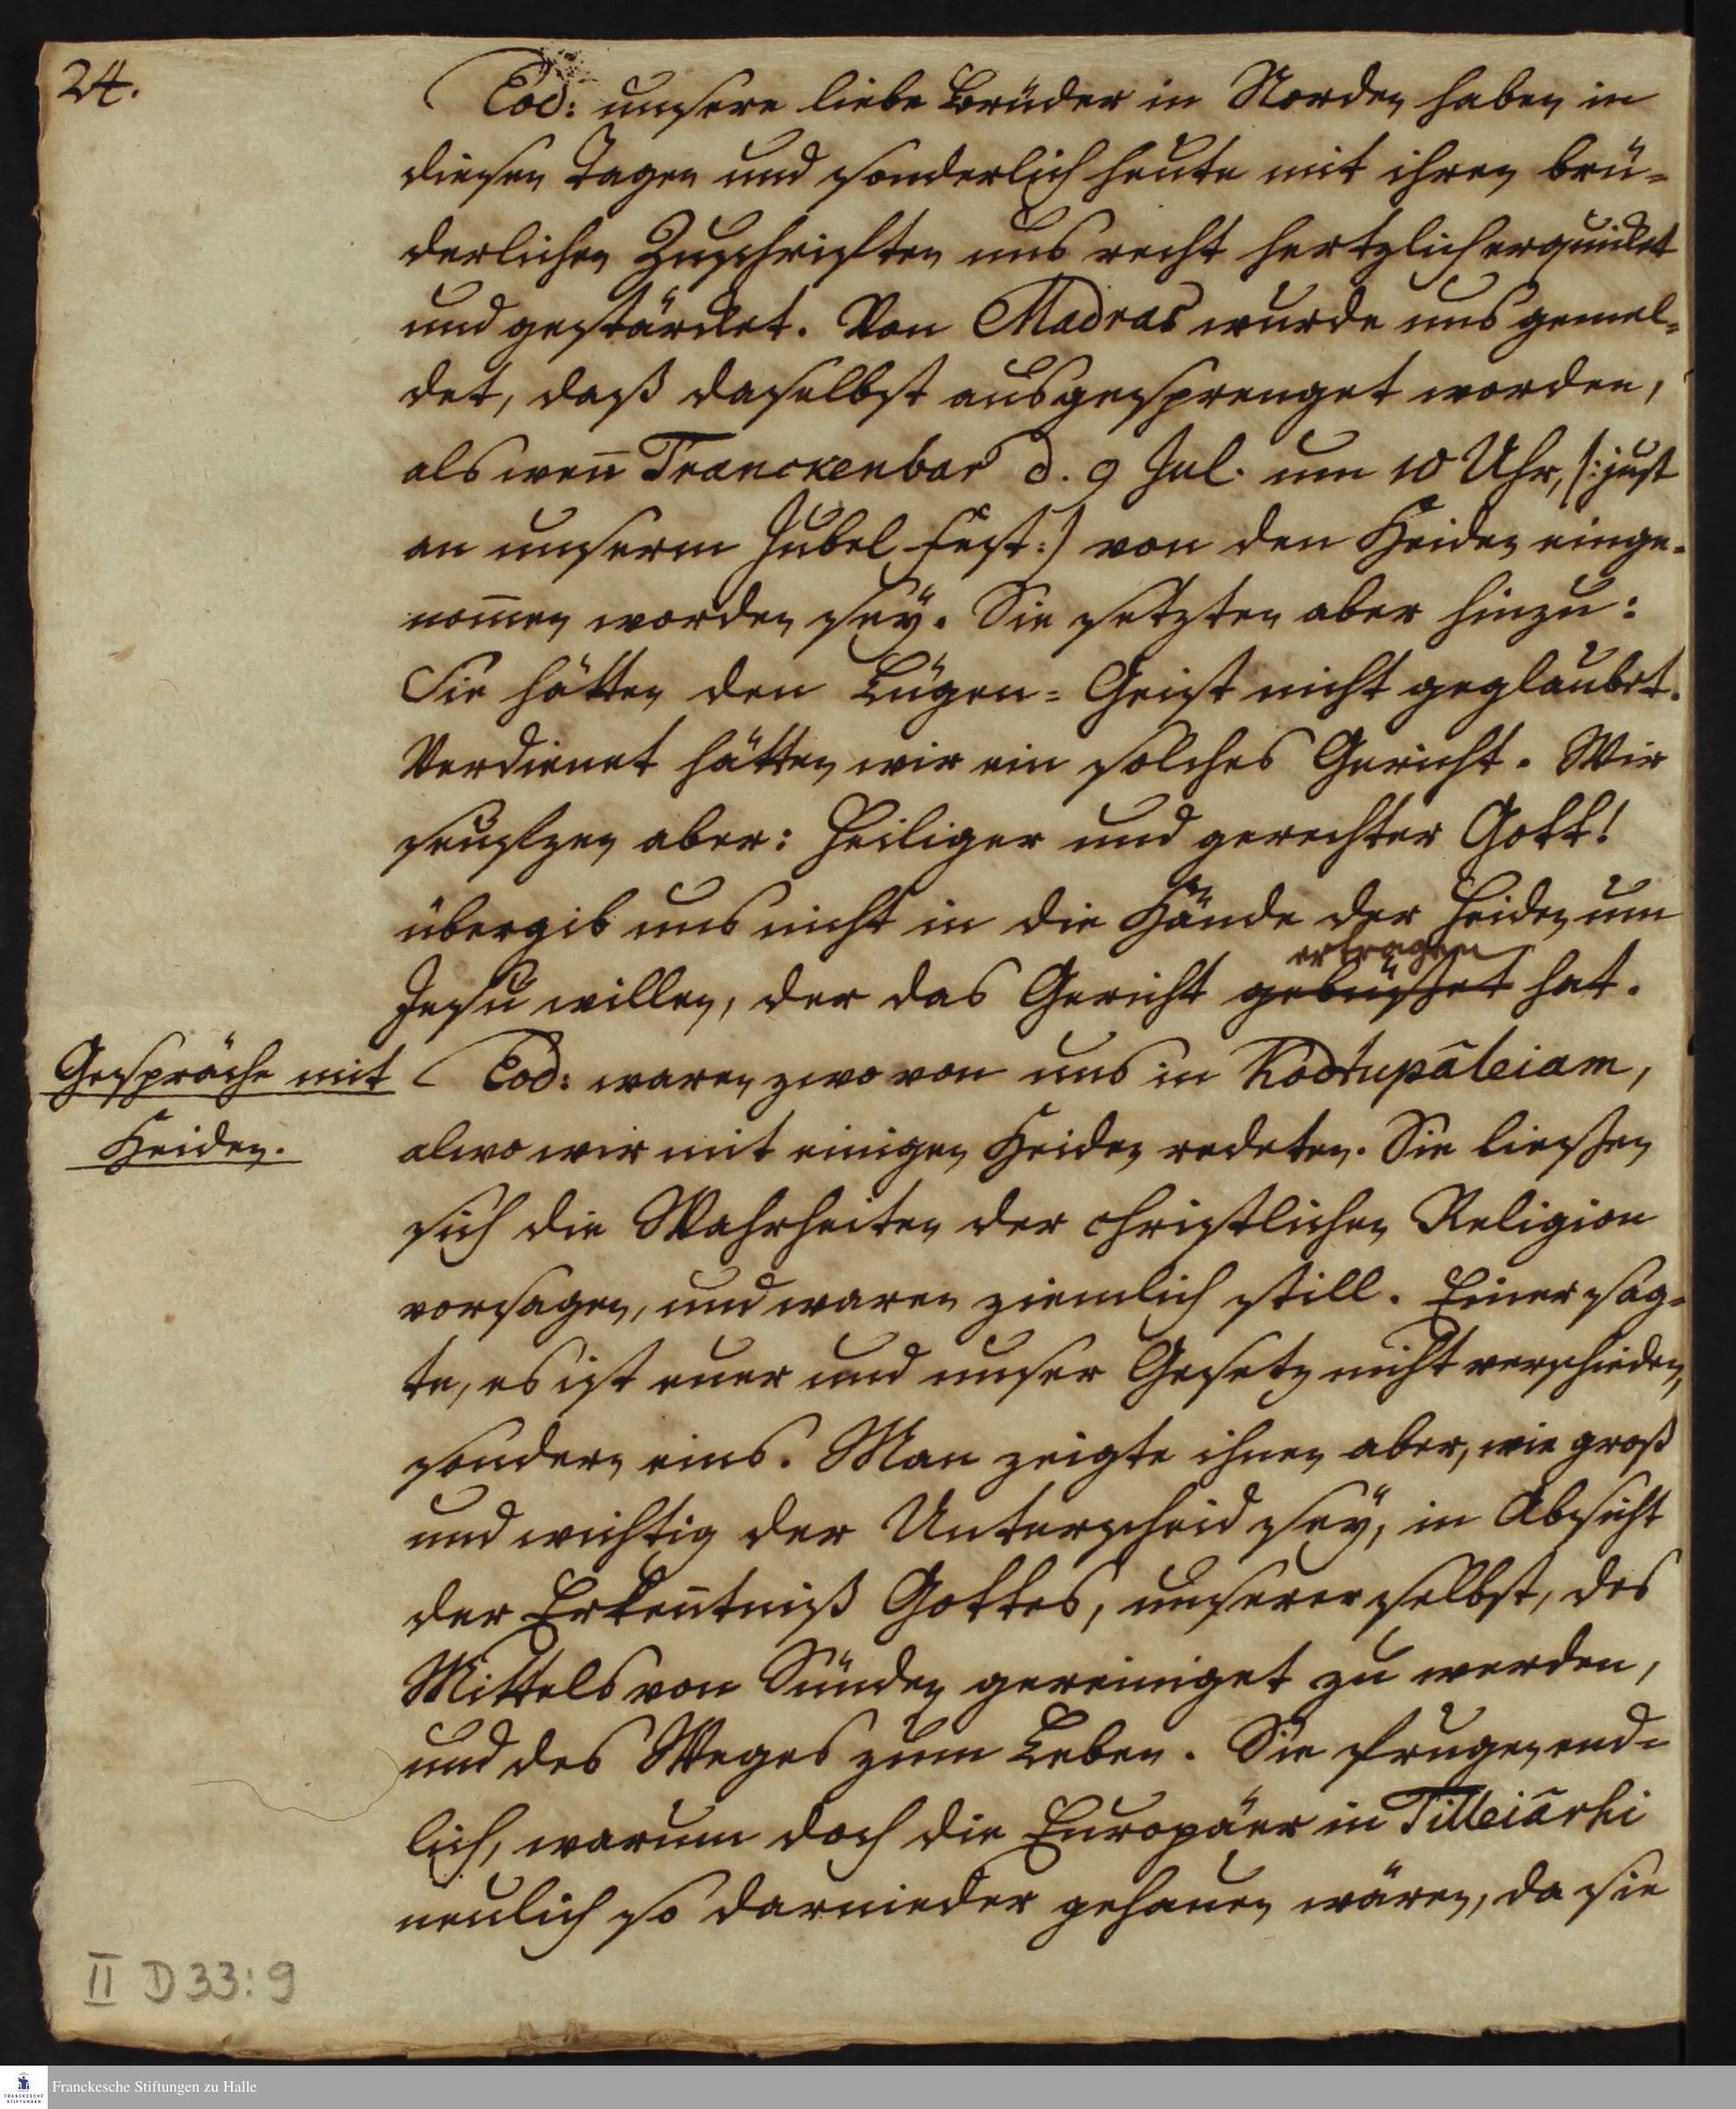 24.
Eod: unsere liebe Brüder in Norden haben in
diesen Tagen und sonderlich heute mit ihren brü-
derlichen Zuschrifften uns recht hertzlich erquicket
und gestärcket. Von Madras wurde uns gemel-
det, daß daselbst ausgesprenget worden,
als weñ Tranckenbar d. 9 Jul. um 10 Uhr, /: just
an unserm Jubel Fest :/ von den Heiden einge-
nom̄en worden sey. Sie setzten aber hinzu:
Sie hätten den Lügen-Geist nicht geglaubet.
Verdienet hätten wir ein solches Gericht. Wir
seufzen aber: Heiliger und gerechter Gott!
übergib uns nicht in die Hände der Heiden um
ertragen
Jesu willen, der das Gericht gebüsset hat.
Gespräche mit
Heiden.
Eod: waren zwo von uns in Kodtupâleiam,
alwo wir mit einigen Heiden redeten. Sie liessen
sich die Wahrheiten der christlichen Religion
vorsagen, und waren ziemlich still. Einer sag-
te, es ist euer und unser Gesetz nicht verschieden,
sondern eins. Man zeigte ihnen aber, wie groß
und wichtig der Unterscheid sey, in Absicht
der Erkeñtniß Gottes, unserer selbst, des
Mittels von Sünden gereiniget zu werden,
und des Weges zum Leben. Sie frugen end-
lich, warum doch die Europäer in Tilleiârhi
neulich so darnieder gehauen wären, da sie
II D 33:9
FRANCKESCHE STIFTUNGEN
Franckesche Stiftungen zu Halle